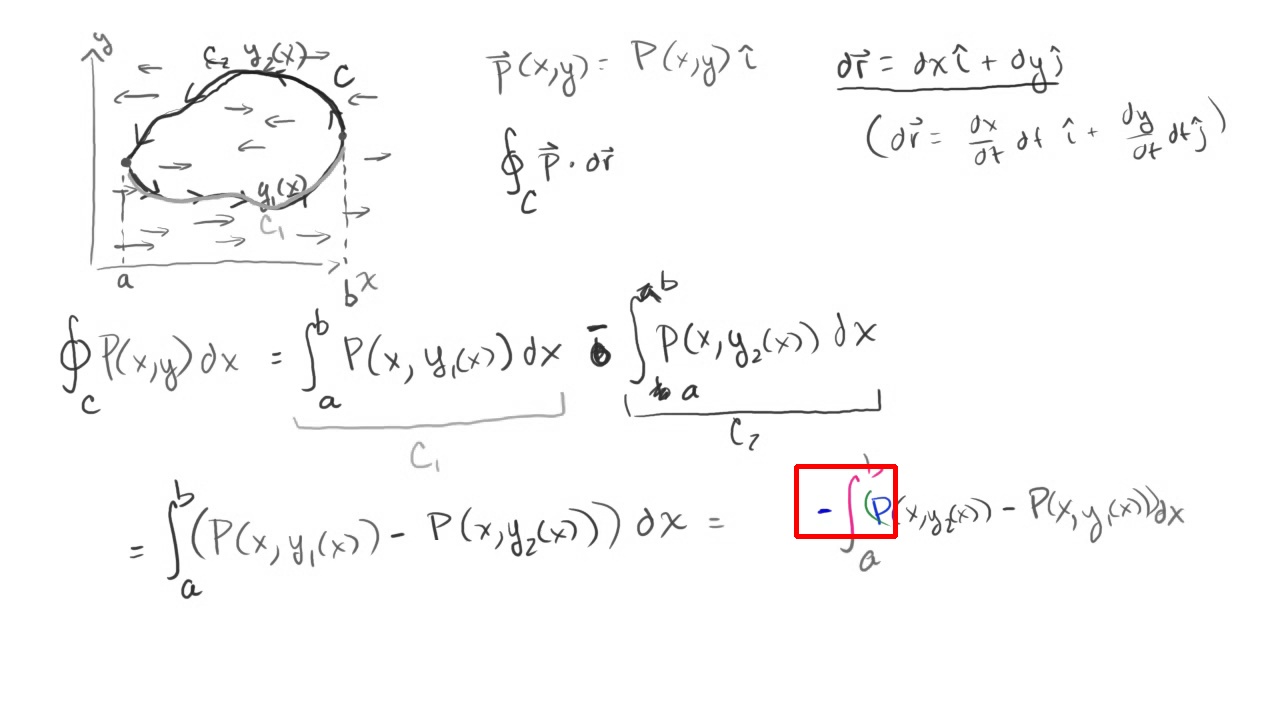 y
C₂ y₂(x)
C
y₁(x)
C₁
a
b x
p⃗(x,y) = P(x,y) î
∮_C p⃗ · dr⃗
dr⃗ = dx î + dy ĵ
(dr⃗ = dx/dt dt î + dy/dt dt ĵ)
∮_C P(x,y) dx = ∫_a^b P(x, y₁(x)) dx - ∫_a^b P(x, y₂(x)) dx
C₁
C₂
= ∫_a^b (P(x, y₁(x)) - P(x, y₂(x))) dx = - ∫_a^b (P(x, y₂(x)) - P(x, y₁(x))) dx